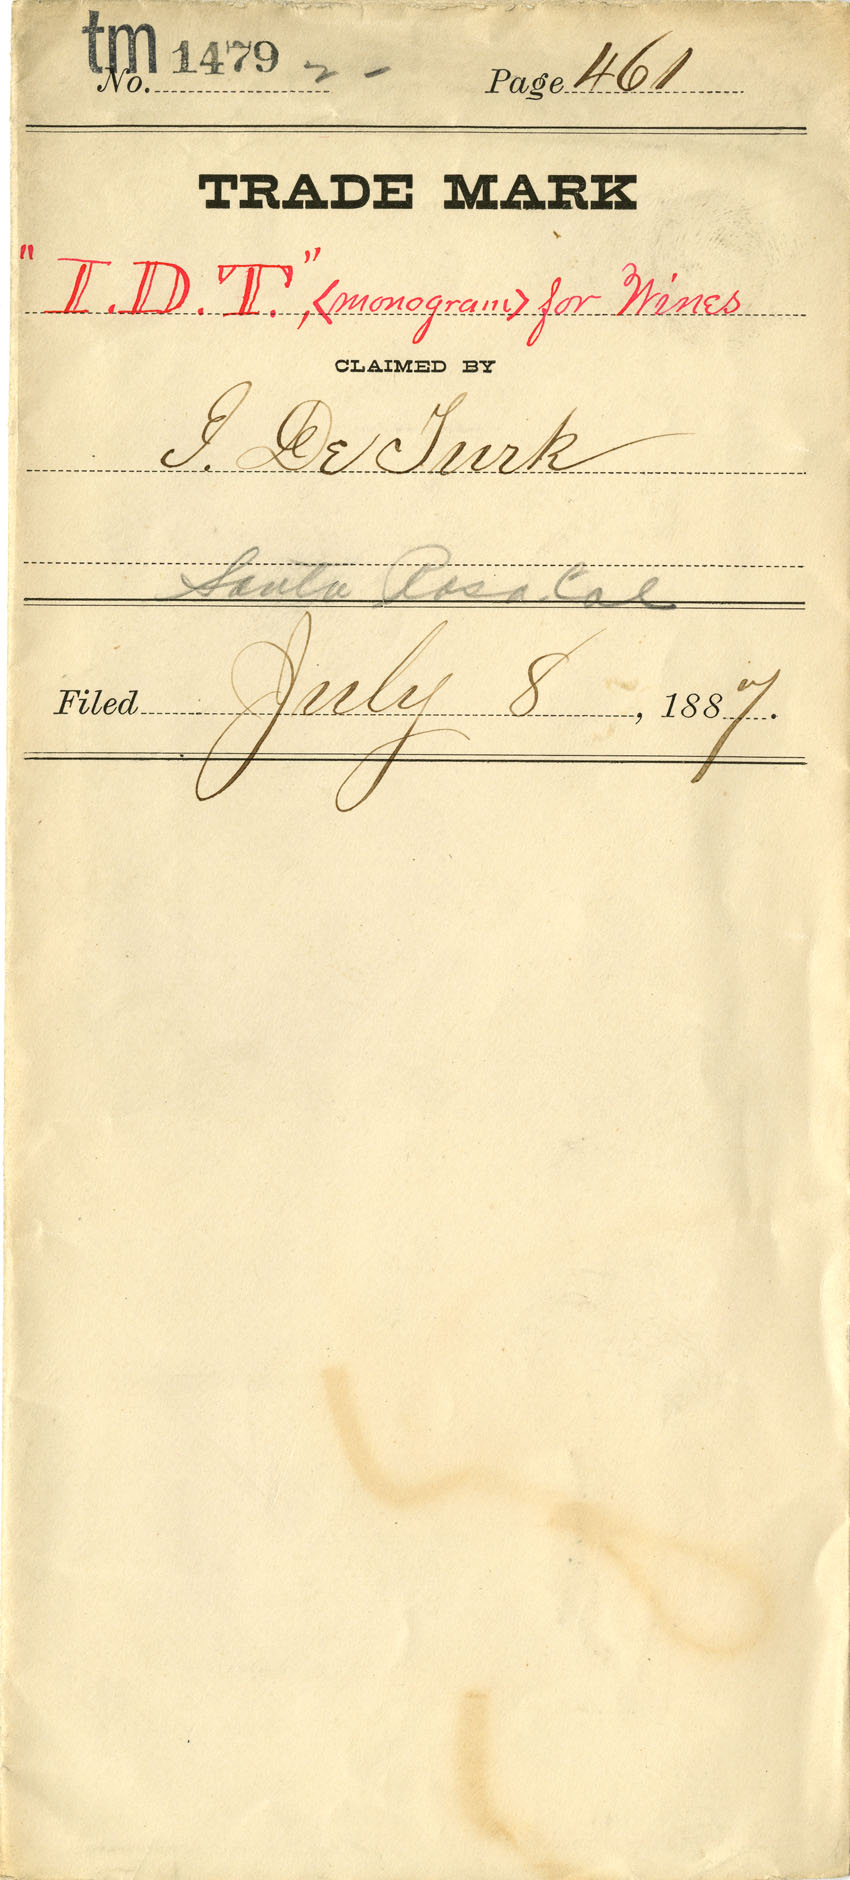 tm 1479
No. Page 461
TRADE MARK
"I.D.T.", (monogram) for Wines
CLAIMED BY
I. De Turk
Santa Rosa Cal
Filed July 8, 1887.